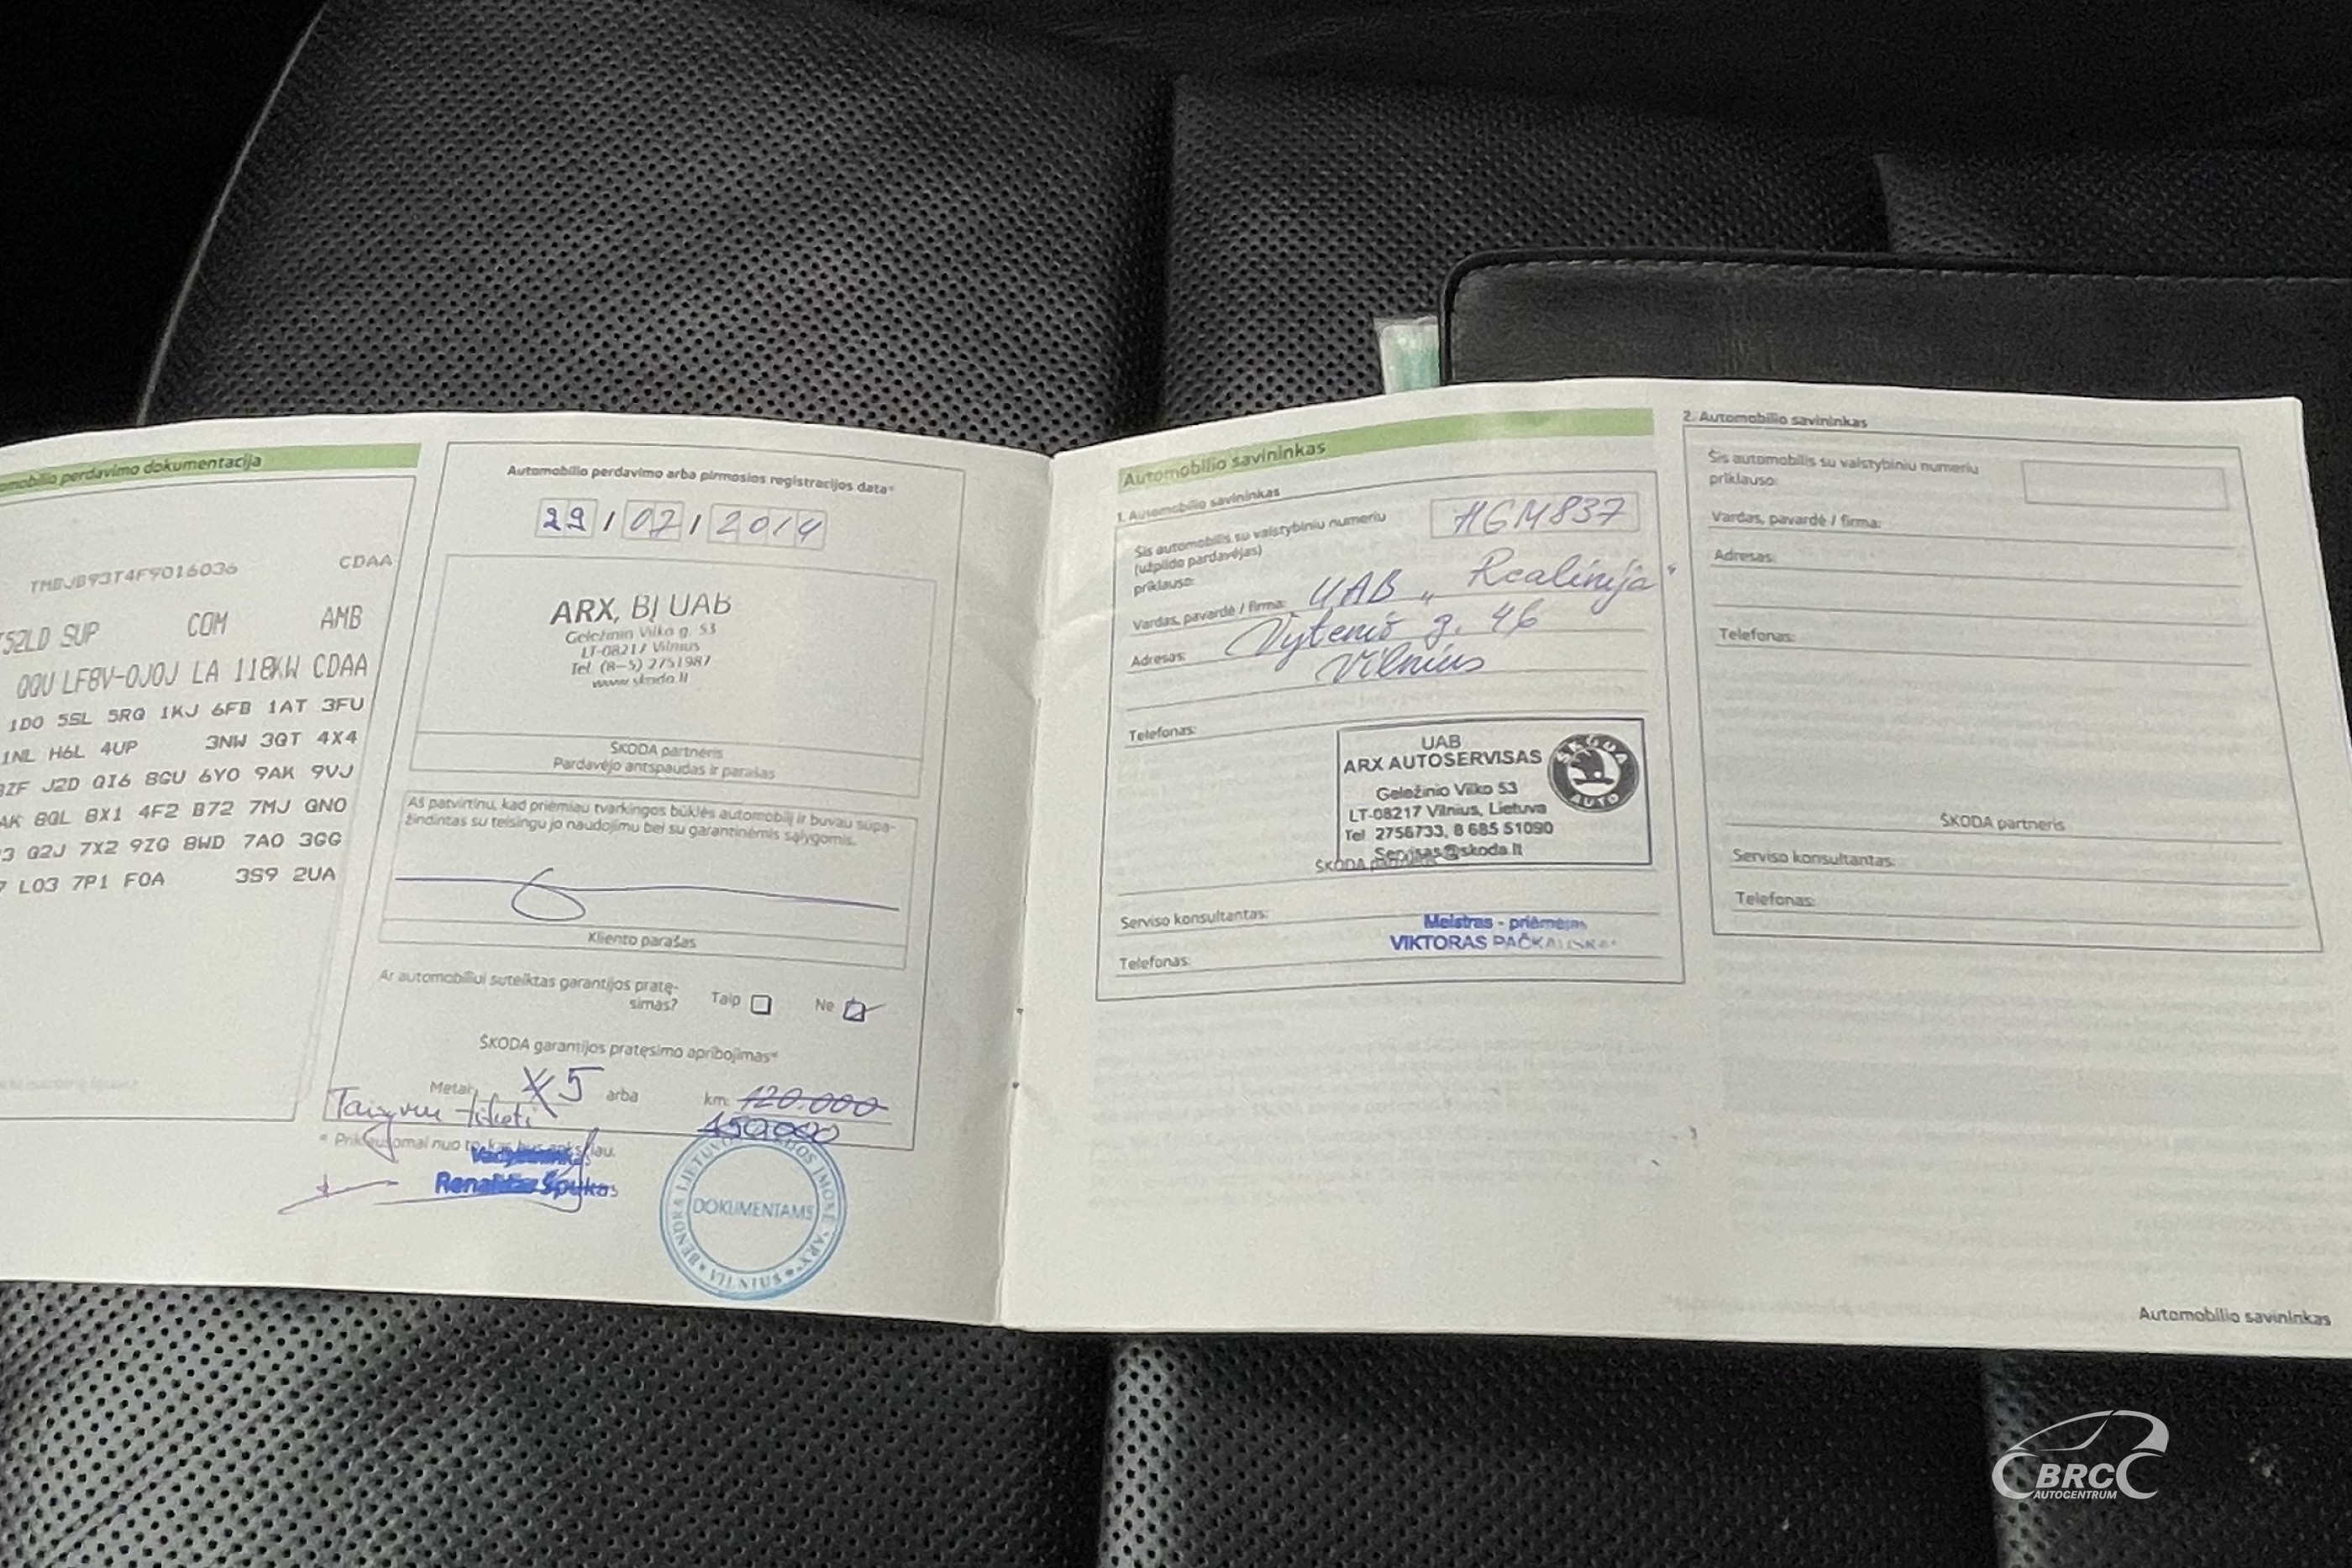 Automobilio perdavimo dokumentacija
TMBJB93T4F9016036 CDAA
52LD SUP COM AMB
QQU LF8V-0J0J LA 118KW CDAA
1D0 5SL 5RQ 1KJ 6FB 1AT 3FU
1NL H6L 4UP 3NW 3QT 4X4
J2D QI6 8GU 6Y0 9AK 9VJ
8QL 8X1 4F2 B72 7MJ QN0
Q2J 7X2 9ZG 8WD 7A0 3GG
L03 7P1 F0A 3S9 2UA
Automobilio perdavimo arba pirmosios registracijos data*
29/07/2014
ARX, BĮ UAB
Geležinio Vilko g. 53
LT-08217 Vilnius
Tel. (8-5) 2751987
www.skoda.lt
ŠKODA partneris
Pardavėjo antspaudas ir parašas
Aš patvirtinu, kad priėmiau tvarkingos būklės automobilį ir buvau supa-
žindintas su teisingu jo naudojimu bei su garantinėmis sąlygomis.
Kliento parašas
Ar automobiliui suteiktas garantijos pratę-
simas? Taip Ne
ŠKODA garantijos pratęsimo apribojimas*
Metai: 5 arba km: 120.000
150.000
Taisymu tikėti
* Priklausomai nuo to, kas bus anksčiau.
DOKUMENTAMS
BENDRA LIETUVOS ĮMONĖ "ARX" VILNIUS
Automobilio savininkas
1. Automobilio savininkas
Šis automobilis su valstybiniu numeriu HGM837
(užpildo pardavėjas)
priklauso:
Vardas, pavardė / firma: UAB „Realinija“
Adresas: Vytenio g. 46
Vilnius
Telefonas:
UAB
ARX AUTOSERVISAS
Geležinio Vilko 53
LT-08217 Vilnius, Lietuva
Tel 2756733, 8 685 51090
Servisas@skoda.lt
ŠKODA AUTO
ŠKODA partneris
Serviso konsultantas: Meistras - priėmėjas
VIKTORAS
Telefonas:
2. Automobilio savininkas
Šis automobilis su valstybiniu numeriu
priklauso:
Vardas, pavardė / firma:
Adresas:
Telefonas:
ŠKODA partneris
Serviso konsultantas:
Telefonas:
Automobilio savininkas
BRC
AUTOCENTRUM